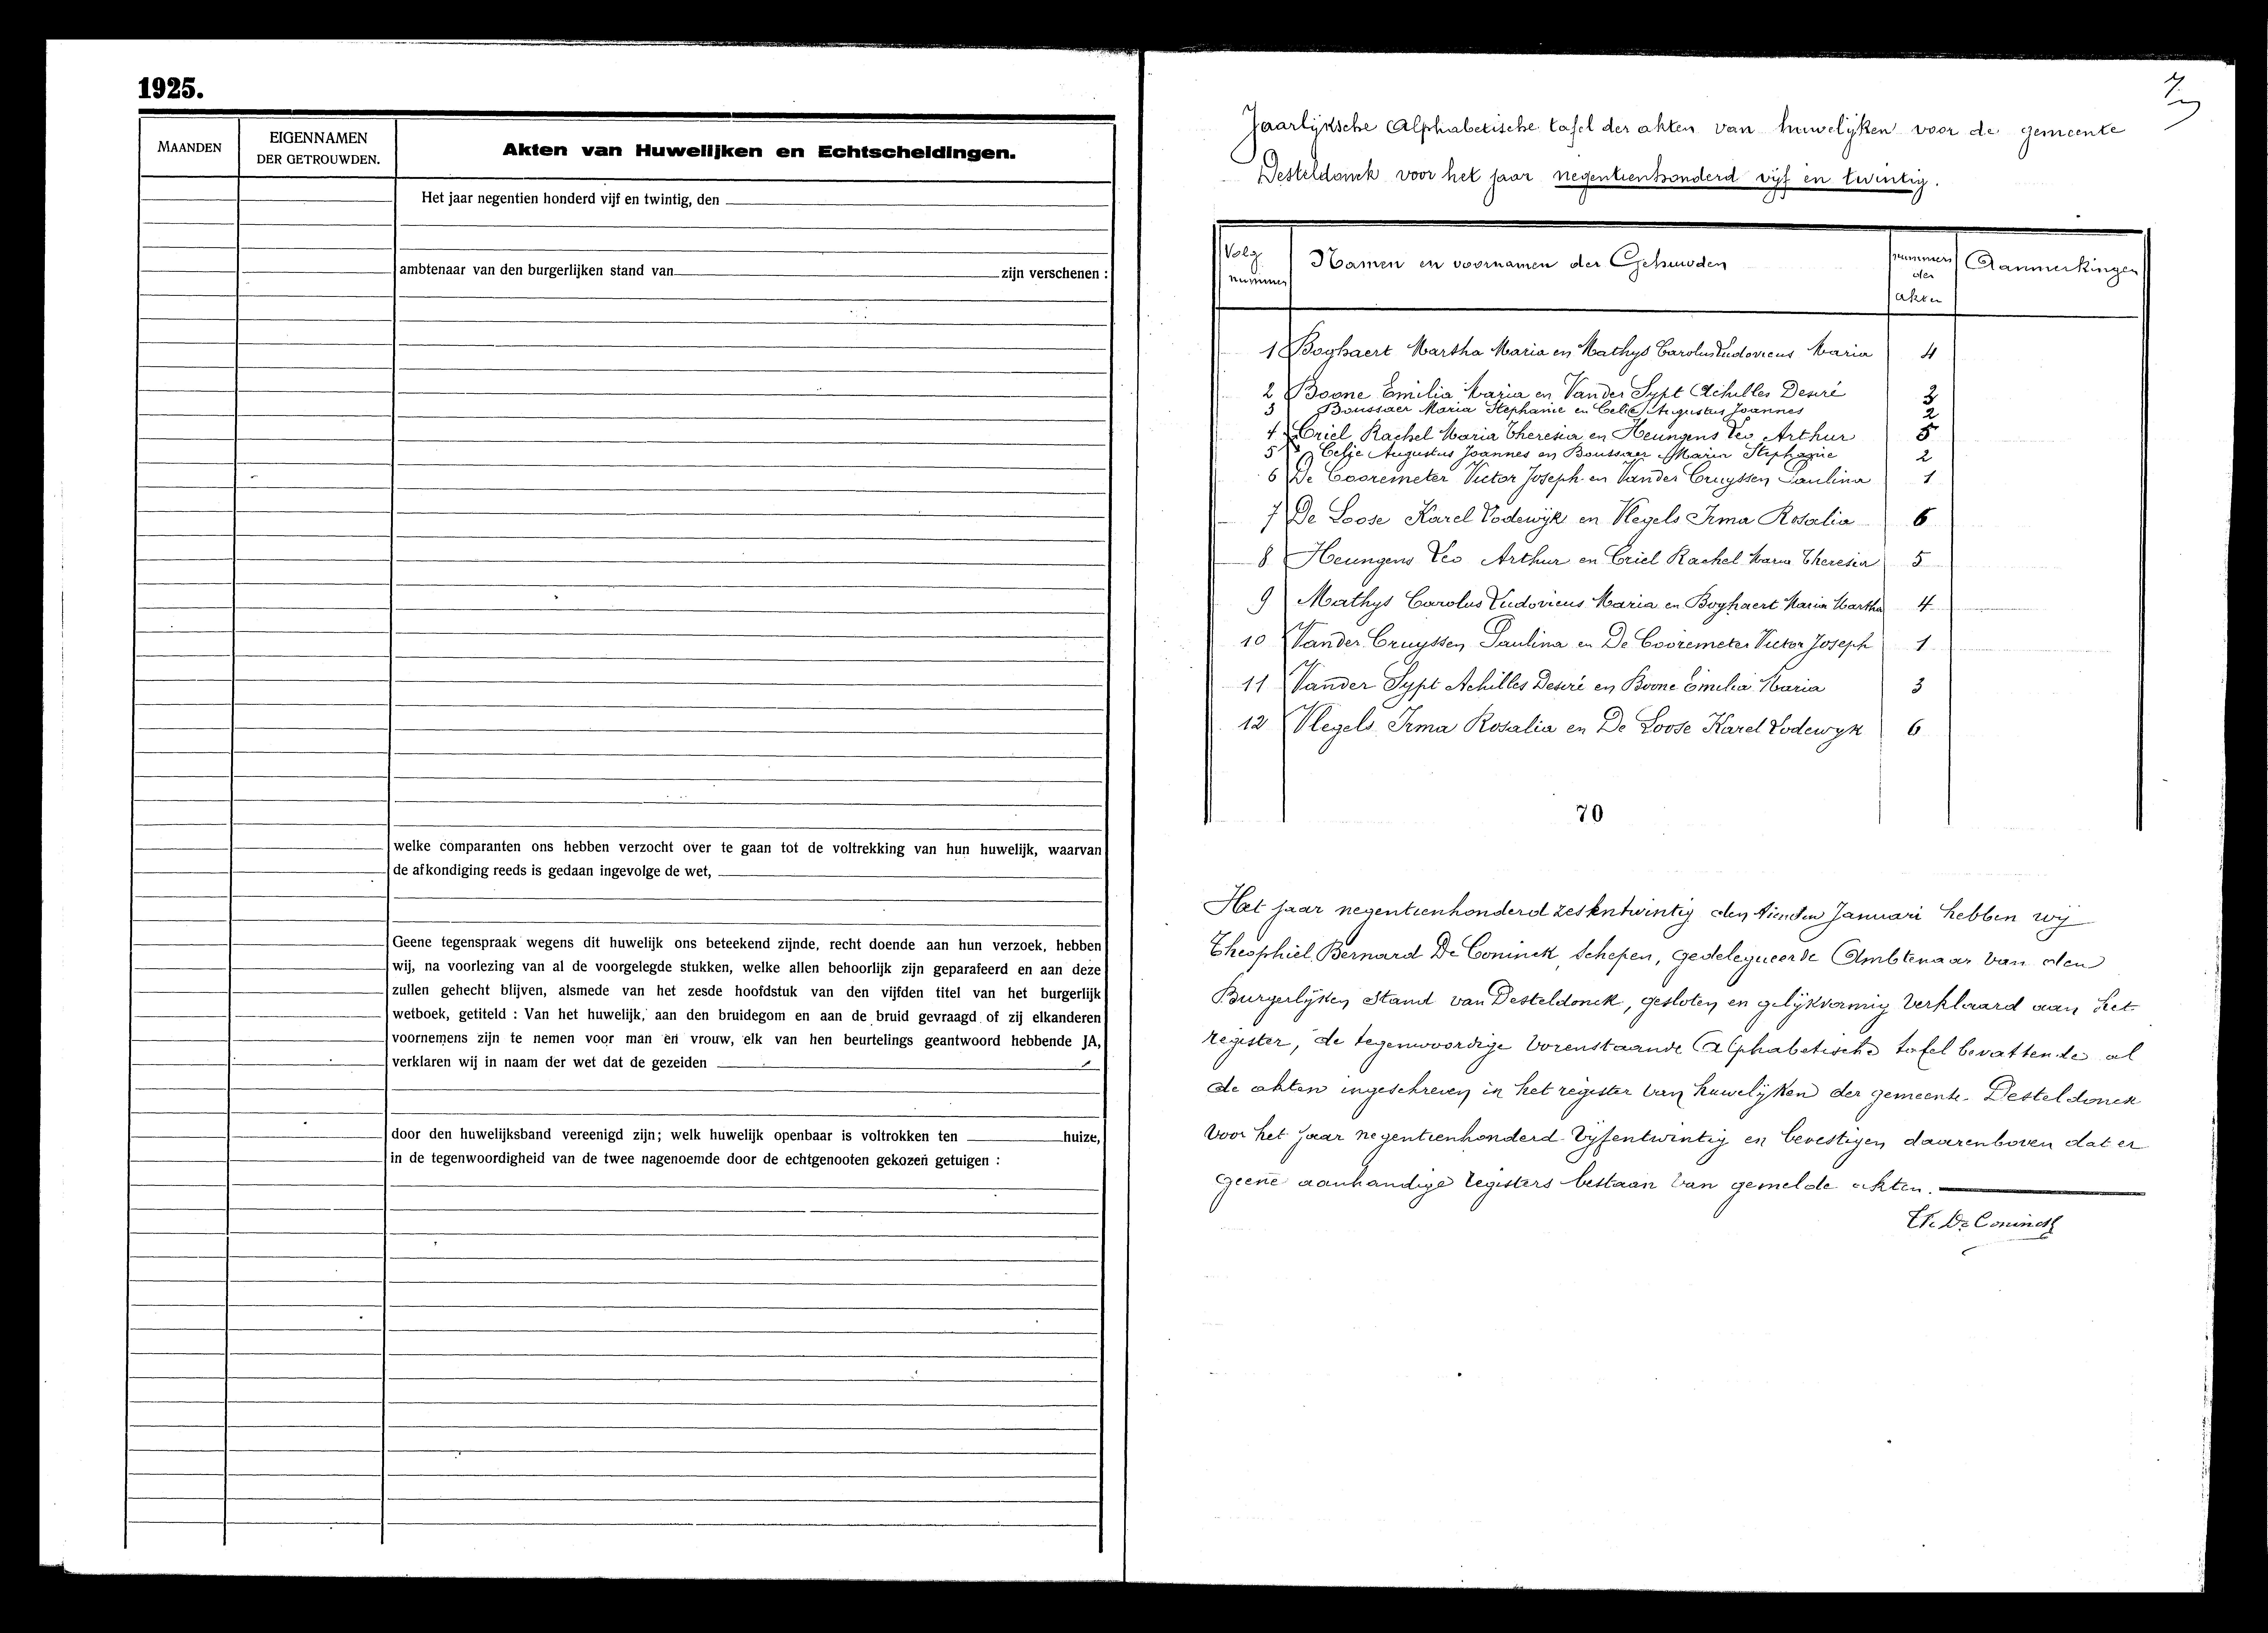 1925.
MAANDEN
EIGENNAMEN
DER GETROUWDEN.
Akten van Huwelijken en Echtscheidingen.
Het jaar negentien honderd vijf en twintig, den
ambtenaar van den burgerlijken stand van zijn verschenen :
welke comparanten ons hebben verzocht over te gaan tot de voltrekking van hun huwelijk, waarvan
de afkondiging reeds is gedaan ingevolge de wet,
Geene tegenspraak wegens dit huwelijk ons beteekend zijnde, recht doende aan hun verzoek, hebben
wij, na voorlezing van al de voorgelegde stukken, welke allen behoorlijk zijn geparafeerd en aan deze
zullen gehecht blijven, alsmede van het zesde hoofdstuk van den vijfden titel van het burgerlijk
wetboek, getiteld : Van het huwelijk, aan den bruidegom en aan de bruid gevraagd of zij elkanderen
voornemens zijn te nemen voor man en vrouw, elk van hen beurtelings geantwoord hebbende JA,
verklaren wij in naam der wet dat de gezeiden
door den huwelijksband vereenigd zijn; welk huwelijk openbaar is voltrokken ten huize,
in de tegenwoordigheid van de twee nagenoemde door de echtgenooten gekozen getuigen :
Jaarlijksche Alphabetische tafel der akten van huwelijken voor de gemeente
Desteldonck voor het jaar negentienhonderd vijf en twintig.
Volg nummer
Namen en voornamen der Gehuwden
nummers der akten
Aanmerkingen
1 Boghaert Martha Maria en Mathys Carolus Ludovicus Maria 4
2 Boone Emilia Maria en Vander Sypt Achilles Desiré 3
3 Boussaer Maria Stephanie en Celie Augustus Joannes 2
4 Criel Rachel Maria Theresia en Heungens Leo Arthur 5
5 Celie Augustus Joannes en Boussaer Maria Stephanie 2
6 De Cooremeter Victor Joseph en Vander Cruyssen Paulina 1
7 De Loose Karel Lodewijk en Vlegels Irma Rosalia 6
8 Heungens Leo Arthur en Criel Rachel Maria Theresia 5
9 Mathys Carolus Ludovicus Maria en Boghaert Maria Martha 4
10 Vander Cruyssen Paulina en De Cooremeter Victor Joseph 1
11 Vander Sypt Achilles Desiré en Boone Emilia Maria 3
12 Vlegels Irma Rosalia en De Loose Karel Lodewyk 6
70
Het jaar negentienhonderd zesentwintig den tienden Januari hebben wij
Theophiel Bernard De Coninck, Schepen, gedelegueerde Ambtenaar van den
Burgerlijken Stand van Desteldonck, gesloten en gelijkvormig verklaard aan het
register, de tegenwoordige vorenstaande Alphabetische tafel bevattende al
de akten ingeschreven in het register van huwelijken der gemeente Desteldonck
voor het jaar negentienhonderd vijfentwintig en bevestigen daarenboven dat er
geene aanhandige registers bestaan van gemelde akten.
Th. De Coninck